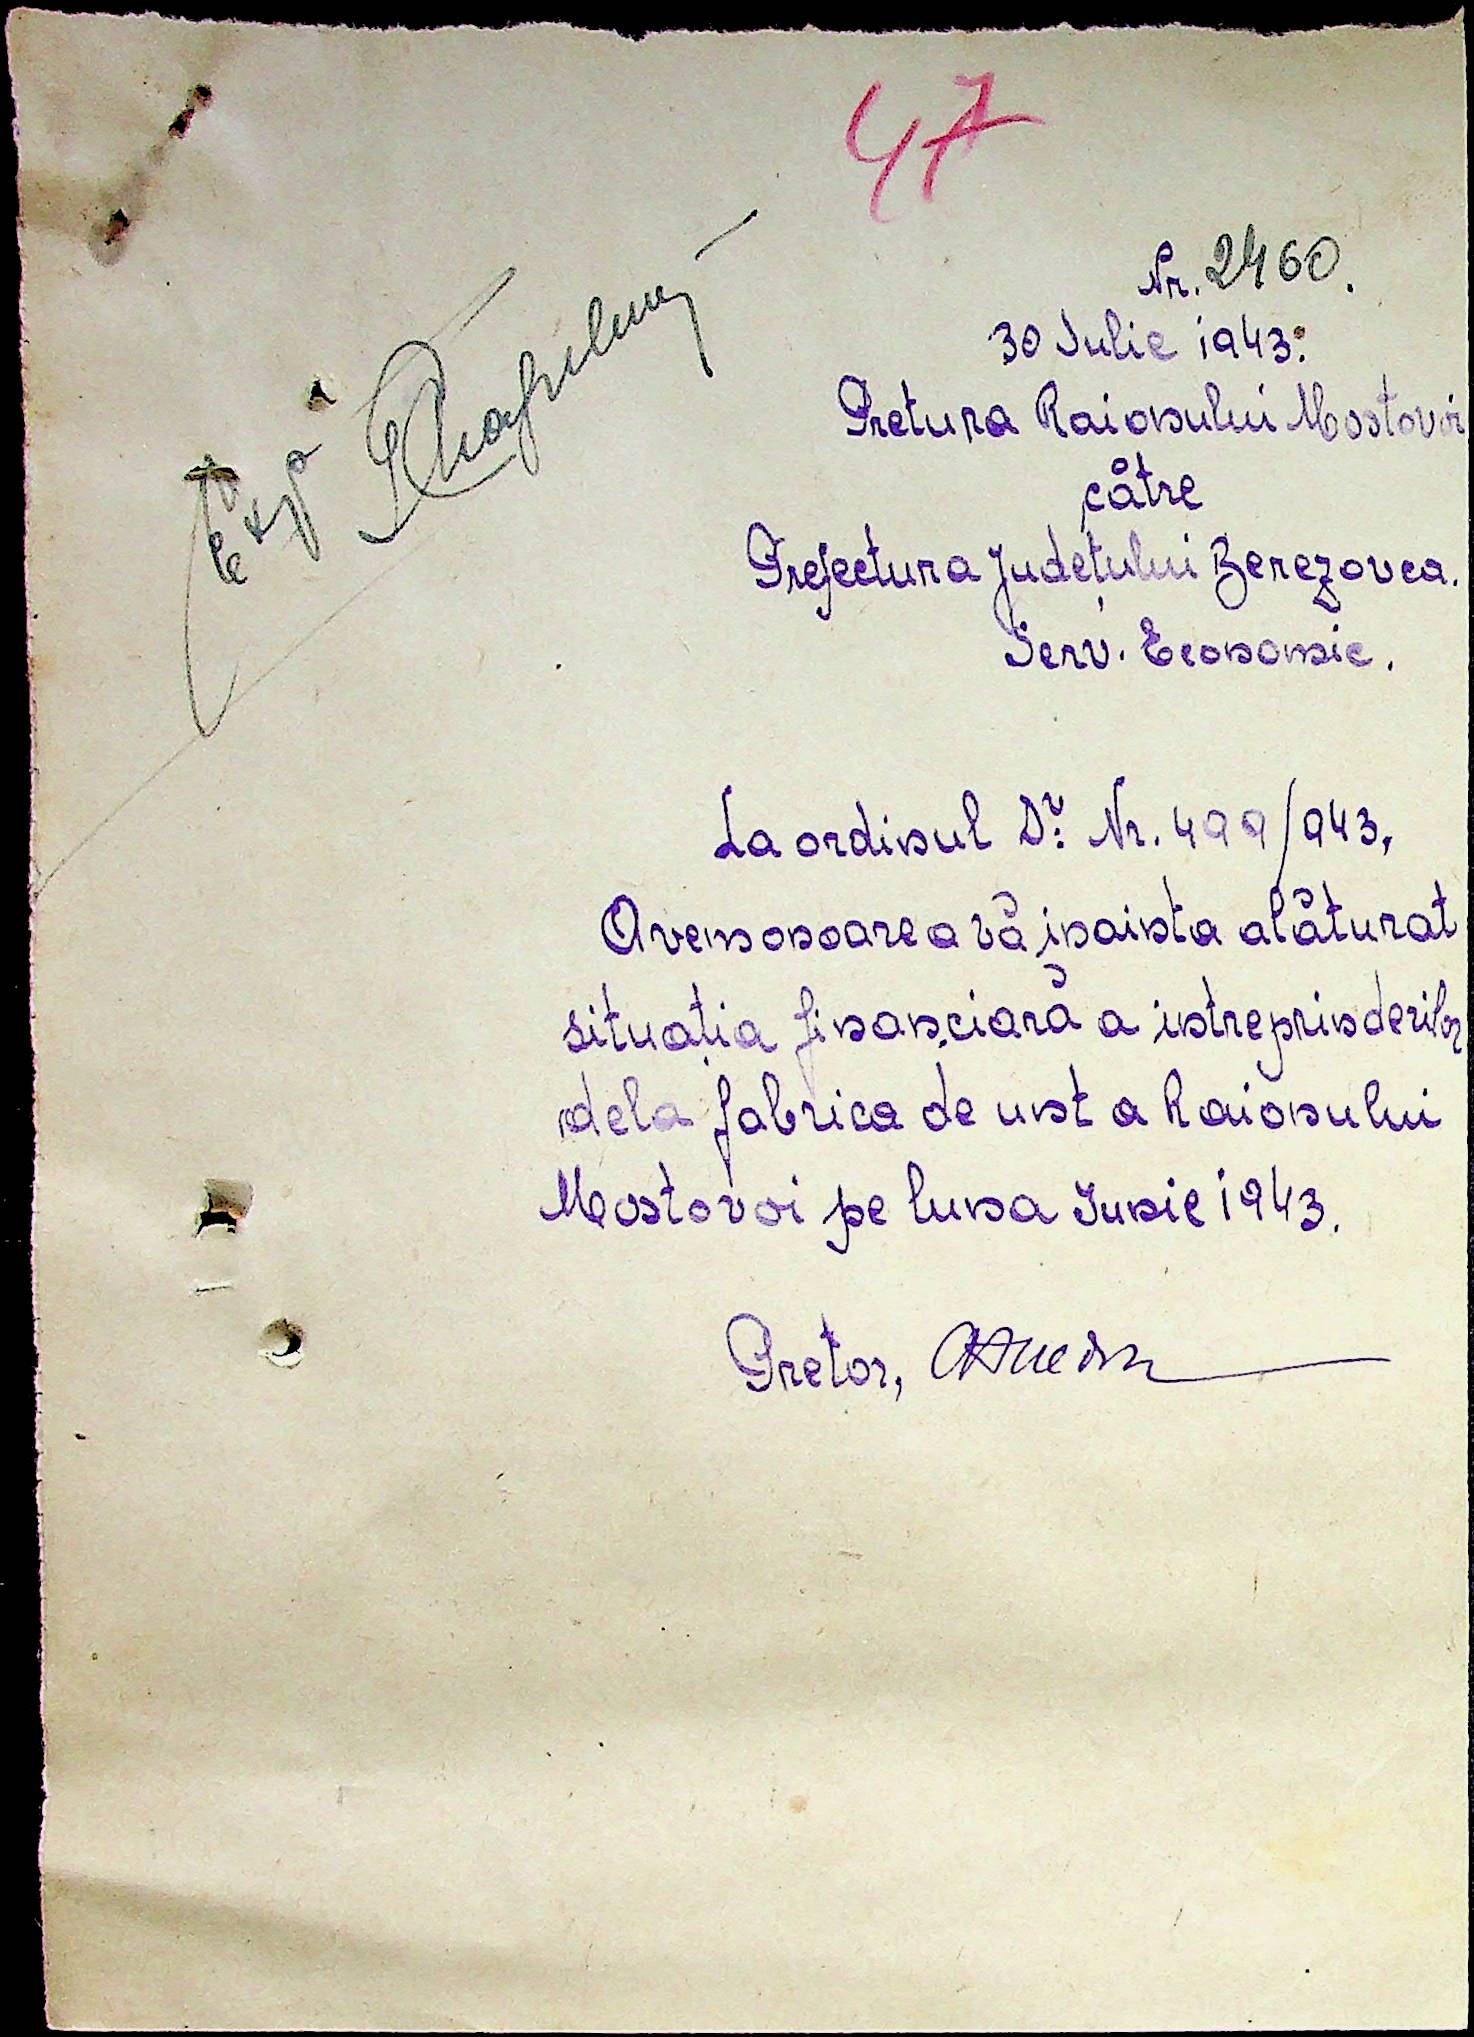 47
Nr. 2460.
30 Iulie 1943.
Pretura Raionului Mostovoi
către
Prefectura Județului Berezovca.
Serv. Economic.
La ordinul Dv. Nr. 499/943,
Avem onoarea vă înainta alăturat
situația financiară a intreprinderilor
dela fabrica de unt a Raionului
Mostovoi pe luna Iunie 1943.
Pretor,